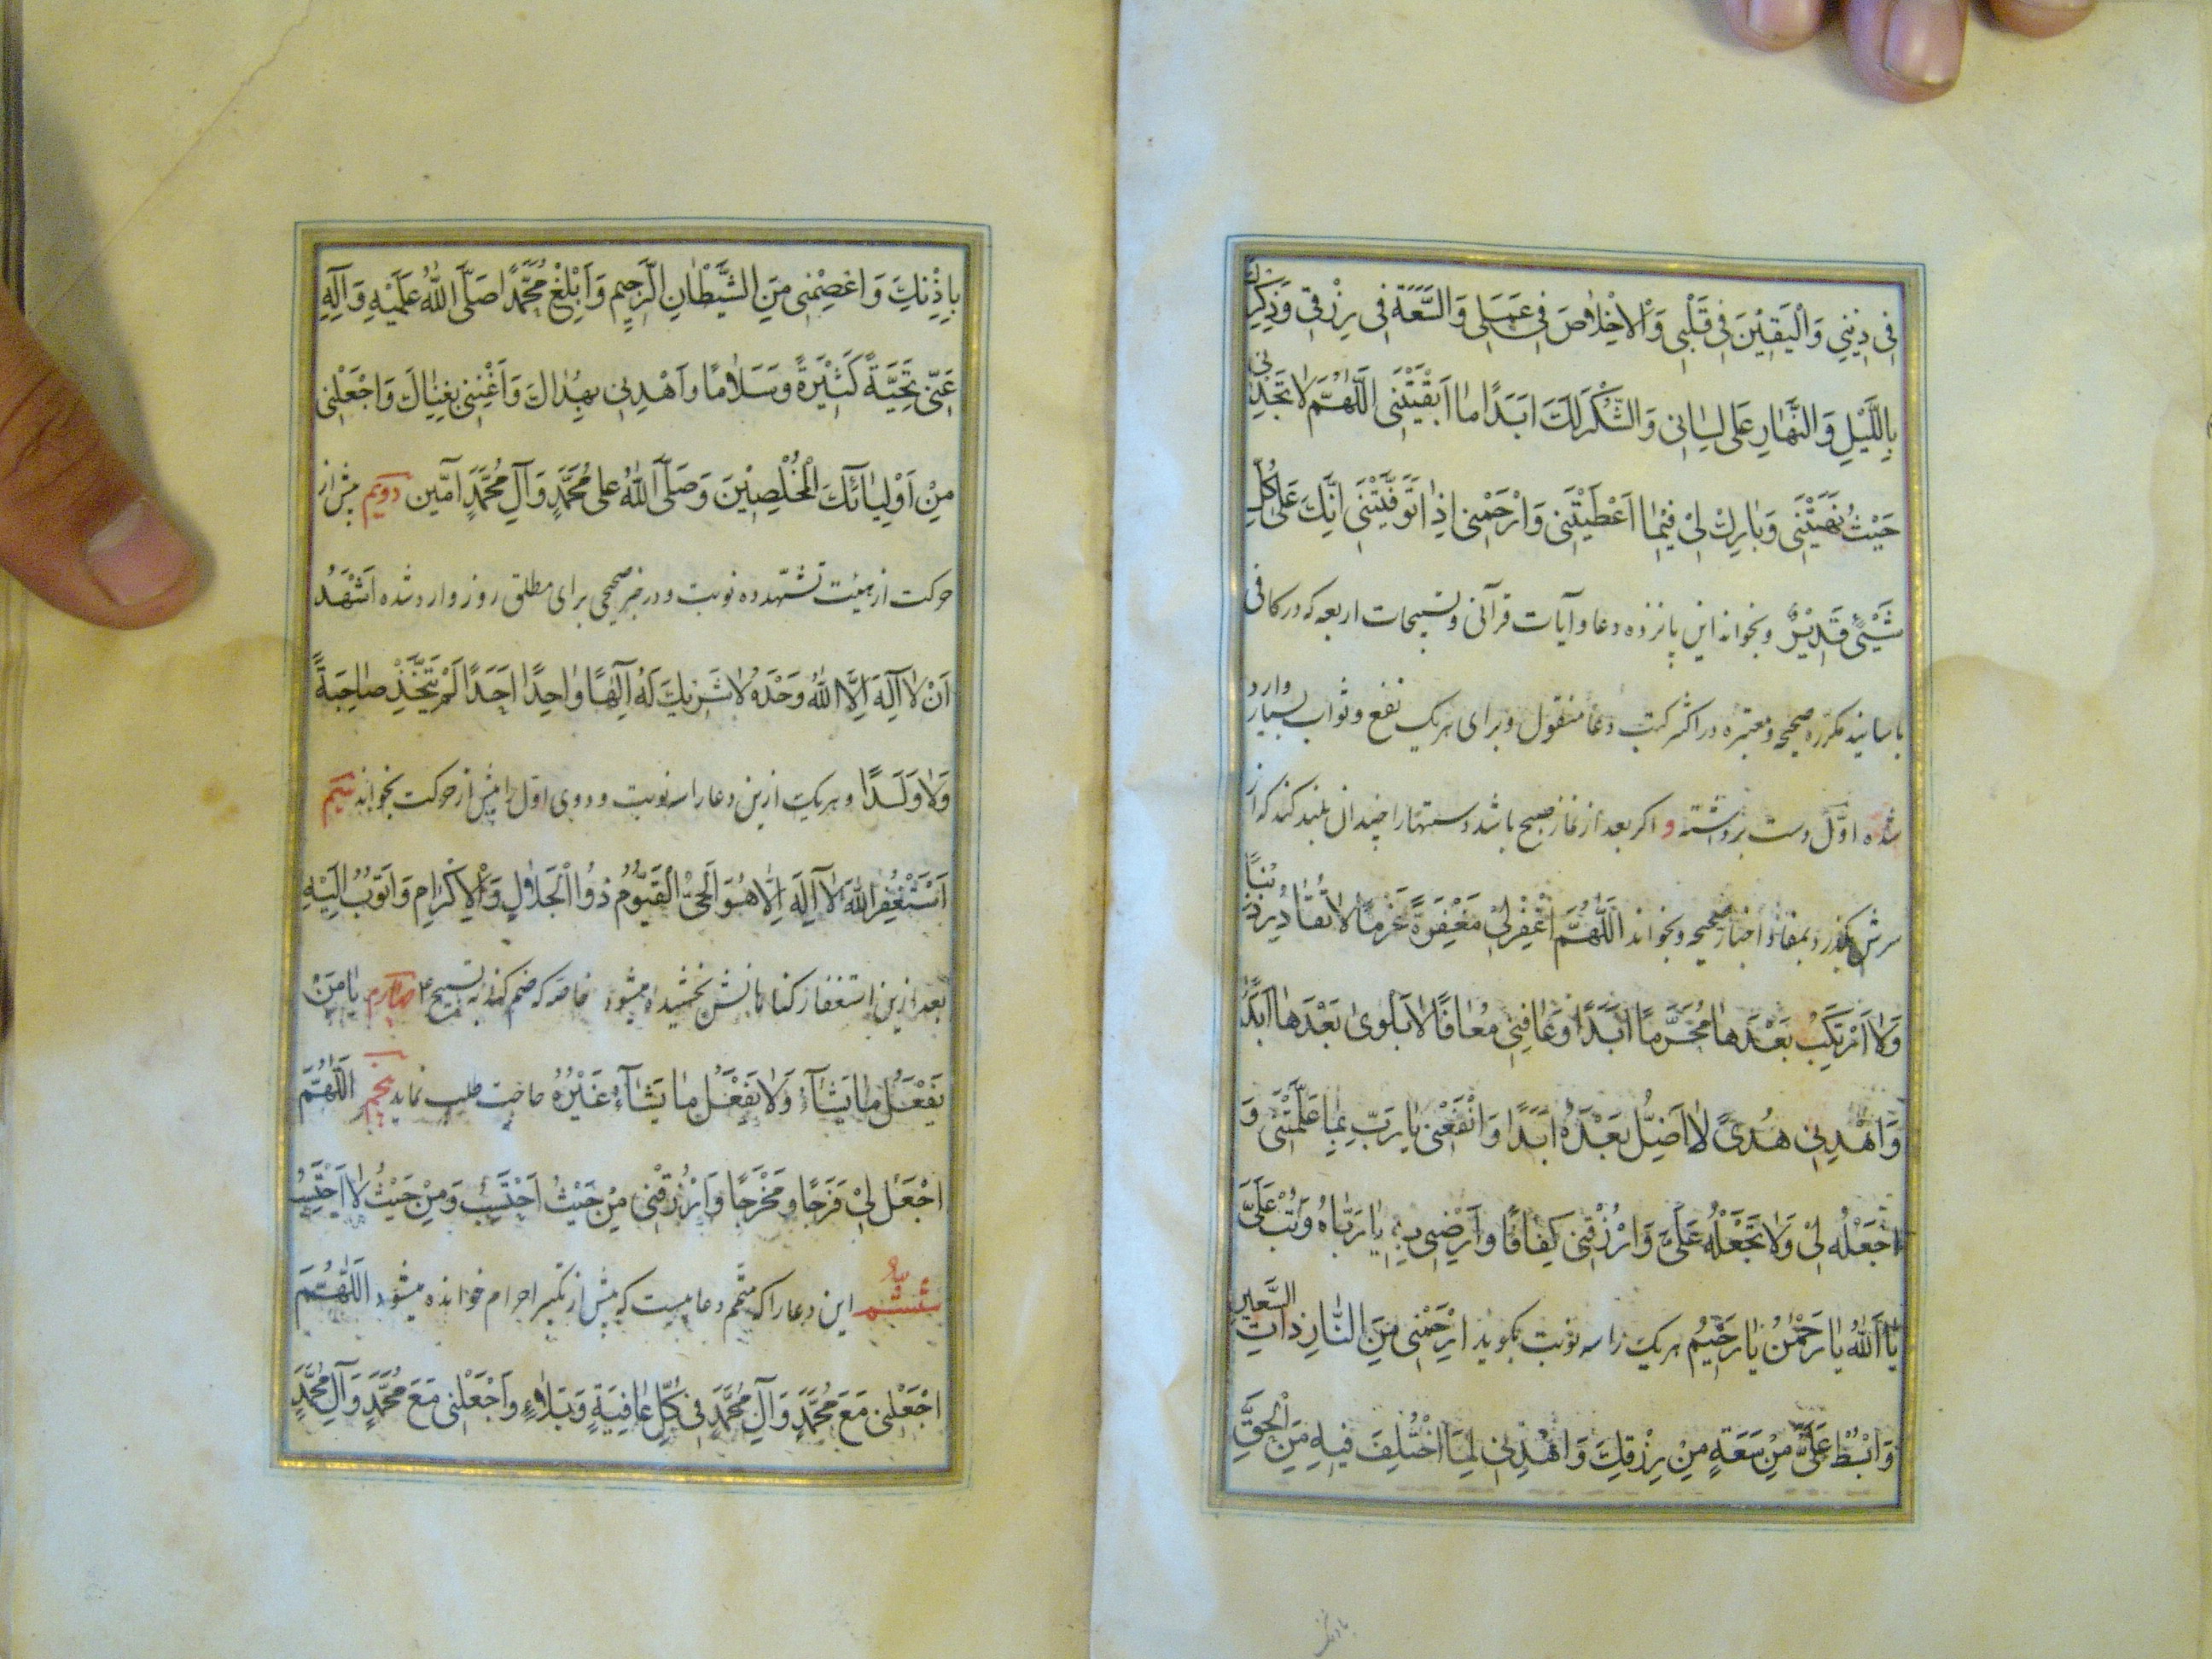 فِی دِیْنِی وَالْیَقِیْنَ فِی قَلْبِی وَالْاِخْلاٰصَ فِی عَمَلِی وَالسَّعَةَ فِی رِزْقِی وَذِکْرَكَ
بِاللَّیْلِ وَالنَّهٰارِ عَلیٰ لِسٰانِی وَالشُّکْرَ لَكَ اَبَدًا مٰا اَبْقَیْتَنِی اَللّٰهُمَّ لاٰ تَجِدْنِی
حَیْثُ نَهَیْتَنِی وَبٰارِكْ لِیْ فِیْمٰا اَعْطَیْتَنِی وَارْحَمْنِی اِذٰا تَوَفَّیْتَنِی اِنَّكَ عَلیٰ کُلِّ
شَیْئٍ قَدِیْرٌ وبخواند این پانزده دعا وآیات قرآنی وتسبیحات اربعه که در کافی
باسانید مکرره صحیحه ومعتبره در اکثر کتب دعا منقول وبرای هریک نفع وثواب بسیار وارد
شده اوّل دست برداشته و اکر بعد از نماز صبح باشد دستها را چندان بلند کند که از
سرش بکذرد بمفاد اخبار صحیحه وبخواند اَللّٰهُمَّ اغْفِرْلِیْ مَغْفِرَةً عَزْمًا لاٰ تُغٰادِرُ ذَنْبًا
وَلاٰ اَرْتَکِبُ بَعْدَهٰا مُحَرَّمًا اَبَدًا وَعٰافِنِی مُعٰافًا لاٰ بَلْویٰ بَعْدَهٰا اَبَدًا
وَاهْدِنِی هُدیً لاٰ اَضِلُّ بَعْدَهُ اَبَدًا وَانْفَعْنِی یٰا رَبِّ بِمٰا عَلَّمْتَنِی وَ
اجْعَلْهُ لِیْ وَلاٰ تَجْعَلْهُ عَلَیَّ وَارْزُقْنِی کَفٰافًا وَارْضِنِی بِهِ یٰا رَبّٰاهُ وَتُبْ عَلَیَّ
یٰا اَللّٰهُ یٰا رَحْمٰنُ یٰا رَحِیْمُ هریک را سه نوبت بکوید اِرْحَمْنِی مِنَ النّٰارِ ذٰاتِ السَّعِیرِ
وَابْسُطْ عَلَیَّ مِنْ سَعَةِ مِنْ رِزْقِكَ وَاهْدِنِی لِمَا اخْتُلِفَ فِیهِ مِنَ الْحَقِّ
بِاِذْنِكَ وَاعْصِمْنِی مِنَ الشَّیْطٰانِ الرَّجِیمِ وَاَبْلِغْ مُحَمَّدًا صَلَّی اللّٰهُ عَلَیْهِ وَآلِهِ
عَنِّی تَحِیَّةً کَثِیْرَةً وَسَلاٰمًا وَاهْدِنِی بِهُدٰاكَ وَاَغْنِنِی بِغِنٰاكَ وَاجْعَلْنِی
مِنْ اَوْلِیٰائِكَ الْمُخْلِصِیْنَ وَصَلَّی اللّٰهُ عَلیٰ مُحَمَّدٍ وَآلِ مُحَمَّدٍ آمِّین دویم پیش از
حرکت از هیئت تشهّد ده نوبت ودر خبر صحیحی برای مطلق روز وارد شده اَشْهَدُ
اَنْ لاٰ اِلٰهَ اِلَّا اللّٰهُ وَحْدَهُ لاٰ شَرِیكَ لَهُ اِلٰهًا وٰاحِدًا اَحَدًا لَمْ یَتَّخِذْ صٰاحِبَةً
وَلاٰ وَلَدًا وهریک ازین دعا را سه نوبت ودوی اوّل را پیش از حرکت بخواند سیّم
اَسْتَغْفِرُ اللّٰهَ لاٰ اِلٰهَ اِلّٰا هُوَ الْحَیُّ الْقَیُّومُ ذُوا الْجَلاٰلِ وَالْاِکْرٰامِ وَاَتُوبُ اِلَیْهِ
بعد ازین استغفار کناهانش بخشیده میشود خاصّه که ضم کند به تسبیح چهارم یٰا مَنْ
یَفْعَلُ مٰا یَشٰآءُ وَلاٰ یَفْعَلُ مٰا یَشٰآءُ غَیْرُهُ حاجت طلب نماید پنجم اَللّٰهُمَّ
اجْعَلْ لِیْ فَرَجًا وَمَخْرَجًا وَارْزُقْنِی مِنْ حَیْثُ اَحْتَسِبُ وَمِنْ حَیْثُ لاٰ اَحْتَسِبُ
ششم این دعا را که متمّم دعاییست که پیش از تکبیر احرام خوانده میشود اَللّٰهُمَّ
اجْعَلْنِی مَعَ مُحَمَّدٍ وَآلِ مُحَمَّدٍ فِی کُلِّ عٰافِیَةٍ وَبَلاٰءٍ وَاجْعَلْنِی مَعَ مُحَمَّدٍ وَآلِ مُحَمَّدٍ
باذنک